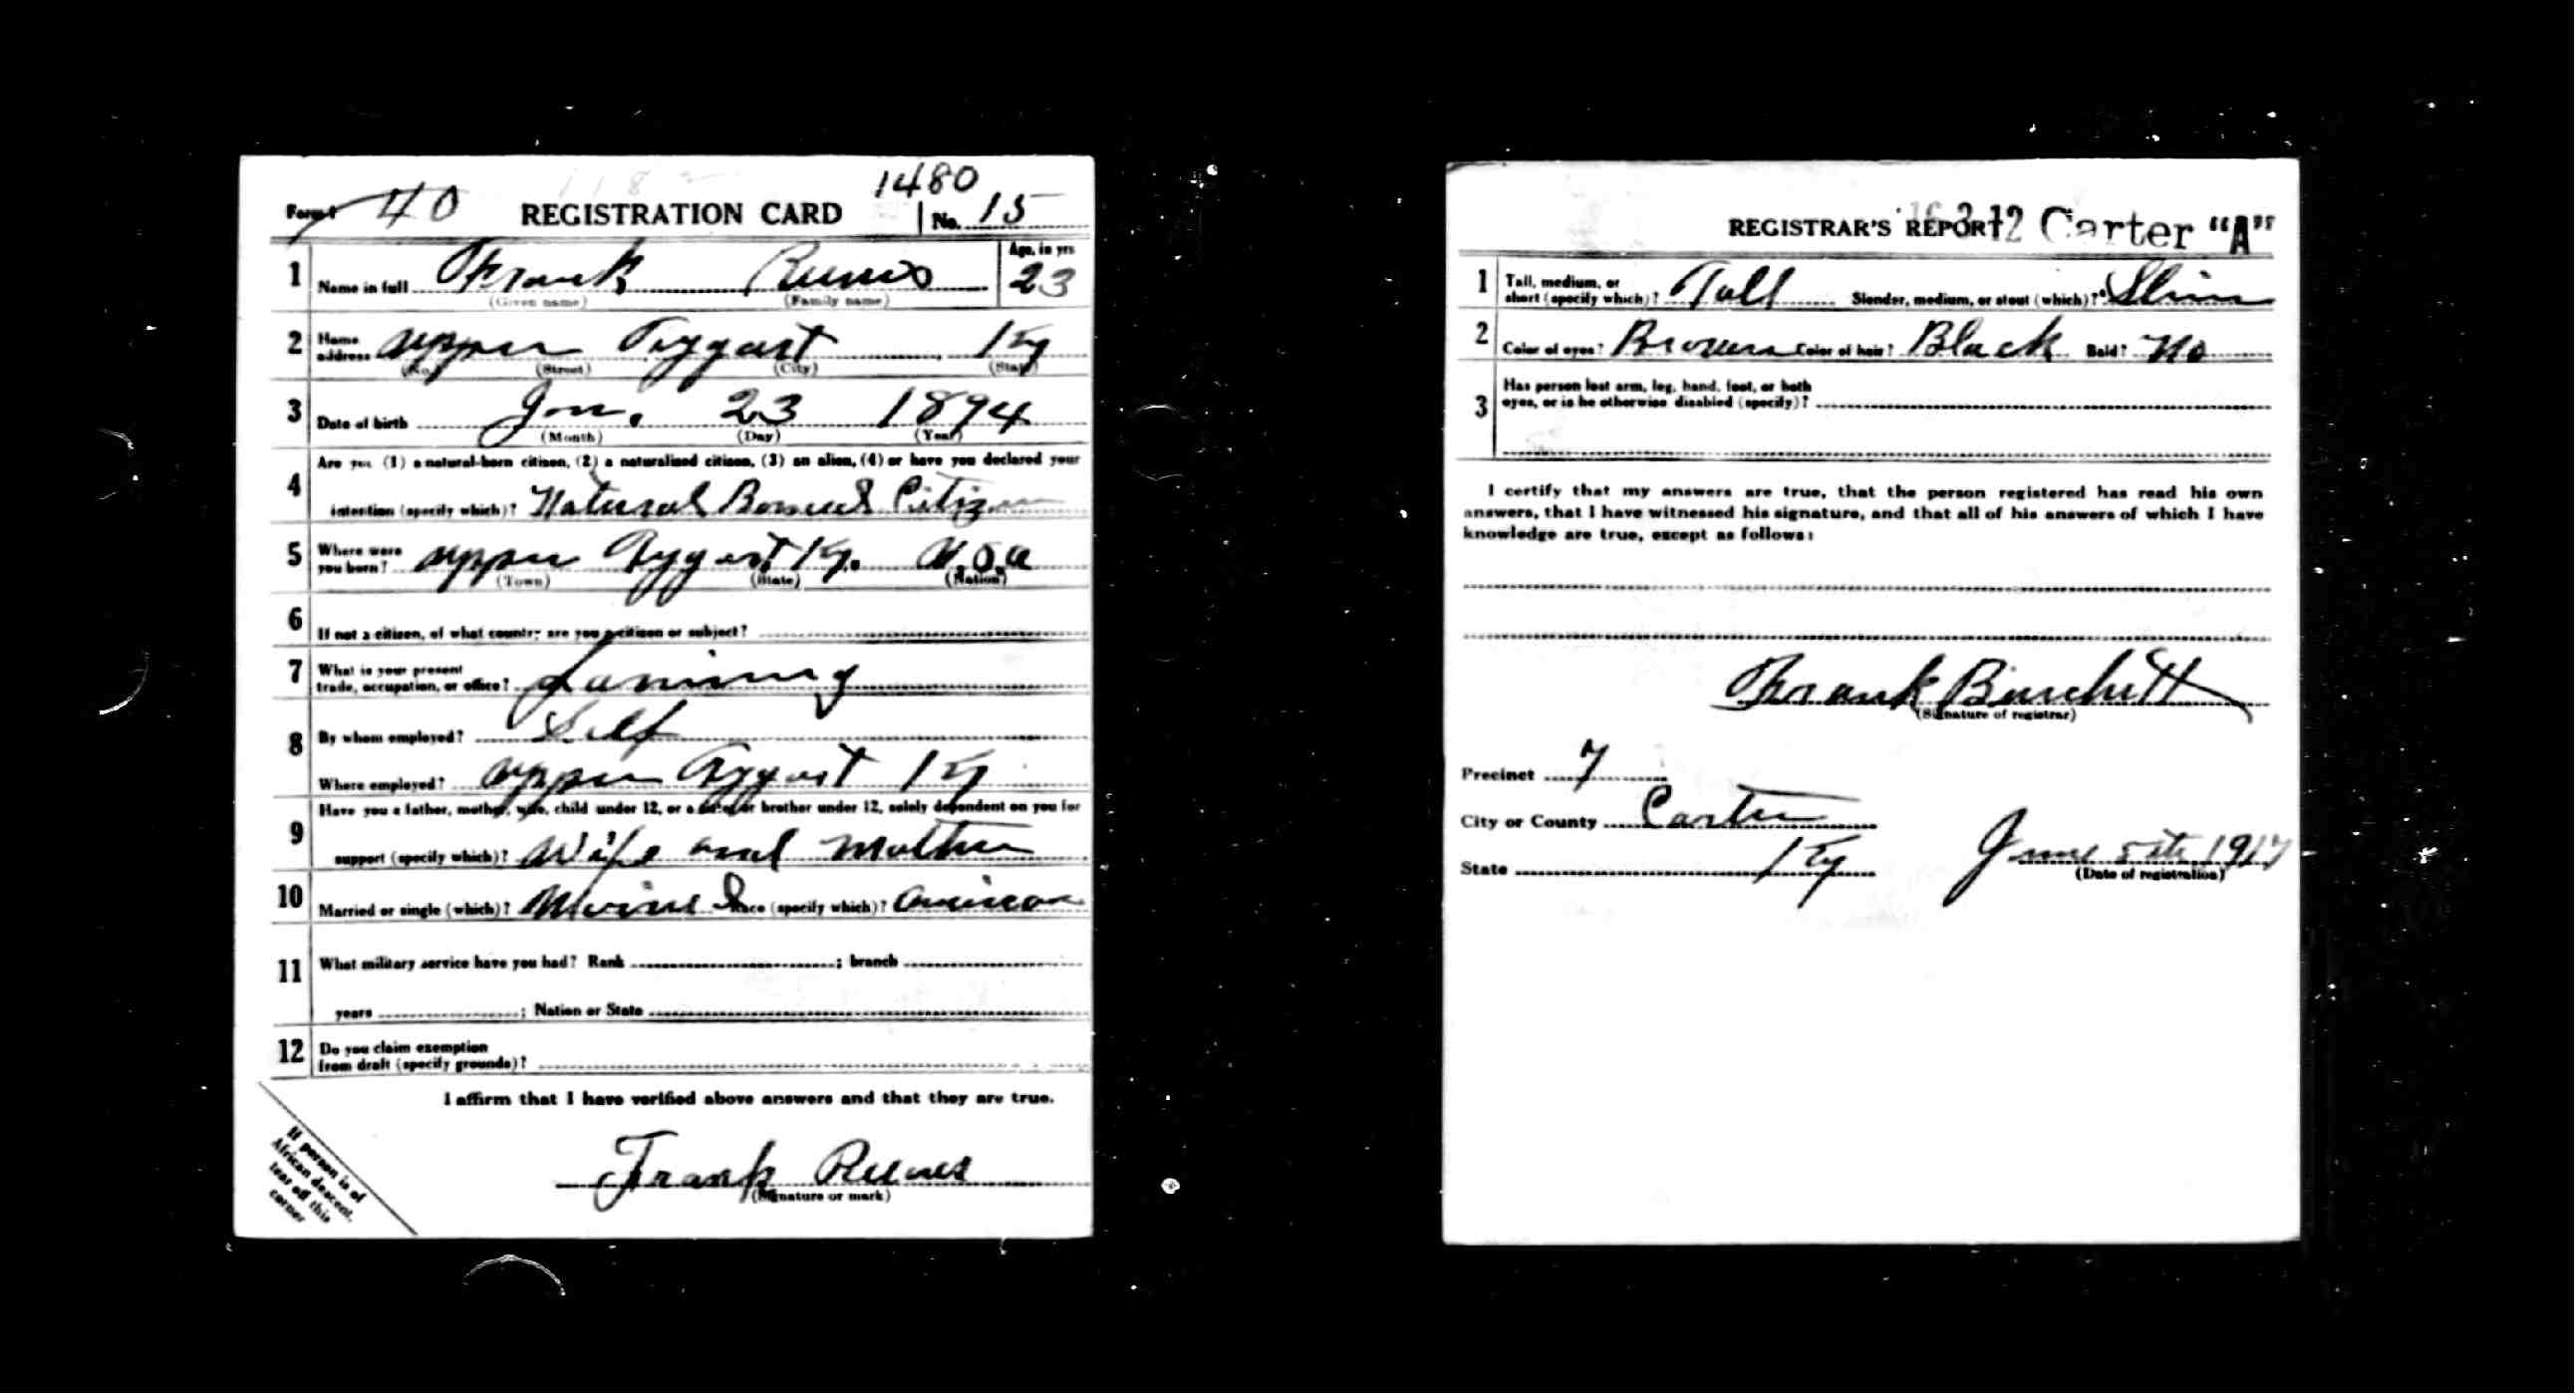 1480
Form 1 40 REGISTRATION CARD No. 15
1 Name in full Frank Reeves Age, in yrs 23
(Given name) (Family name)
2 Home address Upper Tygart Ky
(No.) (Street) (City) (State)
3 Date of birth Jan. 23 1894
(Month) (Day) (Year)
4 Are you (1) a natural-born citizen, (2) a naturalized citizen, (3) an alien, (4) or have you declared your
intention (specify which)? Natural Citizen
5 Where were you born? Upper Tygart Ky. U.S.A
(Town) (State) (Nation)
6 If not a citizen, of what country are you a citizen or subject?
7 What is your present
trade, occupation, or office? Farming
8 By whom employed? Self
Where employed? Upper Tygart Ky
9 Have you a father, mother, wife, child under 12, or a sister or brother under 12, solely dependent on you for
support (specify which)? Wife and Mother
10 Married or single (which)? Race (specify which)? American
11 What military service have you had? Rank ; branch
years ; Nation or State
12 Do you claim exemption
from draft (specify grounds)?
I affirm that I have verified above answers and that they are true.
Frank Reeves
(Signature or mark)
If person is of
African descent,
tear off this
corner
REGISTRAR'S REPORT 16 3-12 Carter "A"
1 Tall, medium, or
short (specify which)? Tall Slender, medium, or stout (which)? Slim
2 Color of eyes? Brown Color of hair? Black Bald? No
3 Has person lost arm, leg, hand, foot, or both
eyes, or is he otherwise disabled (specify)?
I certify that my answers are true, that the person registered has read his own
answers, that I have witnessed his signature, and that all of his answers of which I have
knowledge are true, except as follows:
Frank Burchett
(Signature of registrar)
Precinct 7
City or County Carter
State Ky June 5th 1917
(Date of registration)